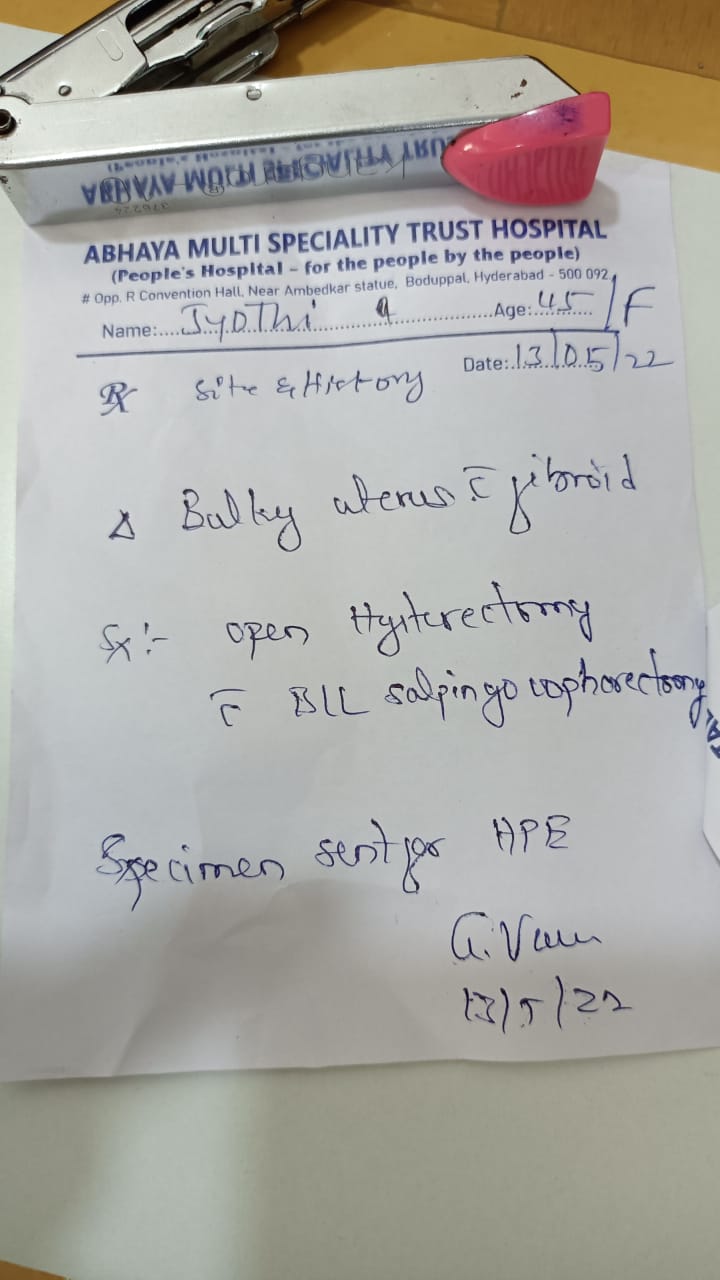 ABHAYA MULTI SPECIALITY TRUST HOSPITAL
(People's Hospital - for the people by the people)
# Opp. R Convention Hall, Near Ambedkar statue, Boduppal, Hyderabad - 500 092
Name:....Jyothi....................Age:.45./F
Rx Site & History Date:.13/05/22
Δ Bulky uterus c̄ fibroid
Sx :- open Hysterectomy
c̄ B/L salpingo oophorectomy
Specimen sent for HPE
G.
13/5/22